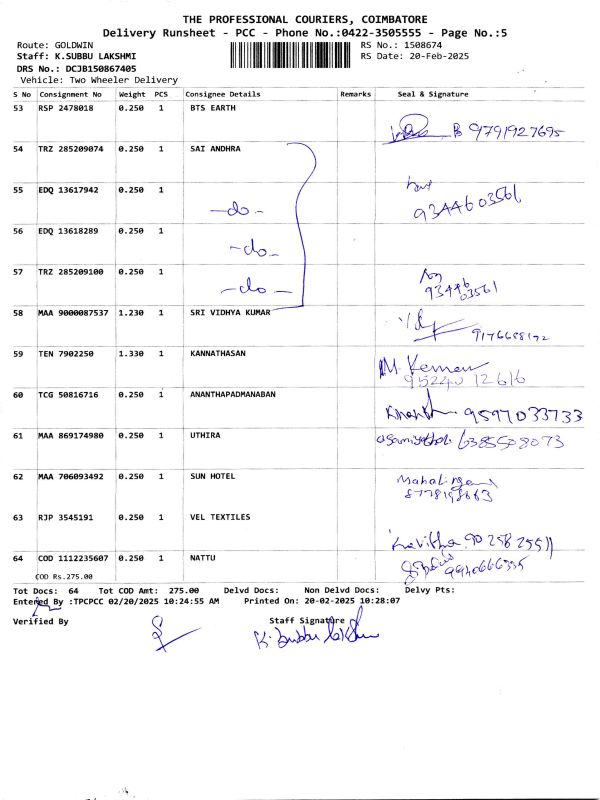 THE PROFESSIONAL COURIERS, COIMBATORE
Delivery Runsheet - PCC - Phone No.:0422-3505555 - Page No.:5
Route: GOLDWIN RS No.: 1508674
Staff: K.SUBBU LAKSHMI RS Date: 20-Feb-2025
DRS No.: DCJB150867405
Vehicle: Two Wheeler Delivery
S No Consignment No Weight PCS Consignee Details Remarks Seal & Signature
53 RSP 2478018 0.250 1 BTS EARTH
B 9791927695
54 TRZ 285209074 0.250 1 SAI ANDHRA
55 EDQ 13617942 0.250 1
-do- 9344603561
56 EDQ 13618289 0.250 1
-do-
57 TRZ 285209100 0.250 1
-do- 93446 03561
58 MAA 9000087537 1.230 1 SRI VIDHYA KUMAR
59 TEN 7902250 1.330 1 KANNATHASAN
95240 12616
60 TCG 50816716 0.250 1 ANANTHAPADMANABAN
9597033733
61 MAA 869174980 0.250 1 UTHIRA
6385508073
62 MAA 706093492 0.250 1 SUN HOTEL
63 RJP 3545191 0.250 1 VEL TEXTILES
Kavitha
64 COD 1112235607 0.250 1 NATTU
COD Rs.275.00
Tot Docs: 64 Tot COD Amt: 275.00 Delvd Docs: Non Delvd Docs: Delvy Pts:
Entered By :TPCPCC 02/20/2025 10:24:55 AM Printed On: 20-02-2025 10:28:07
Verified By Staff Signature
K. Subbu lakshmi